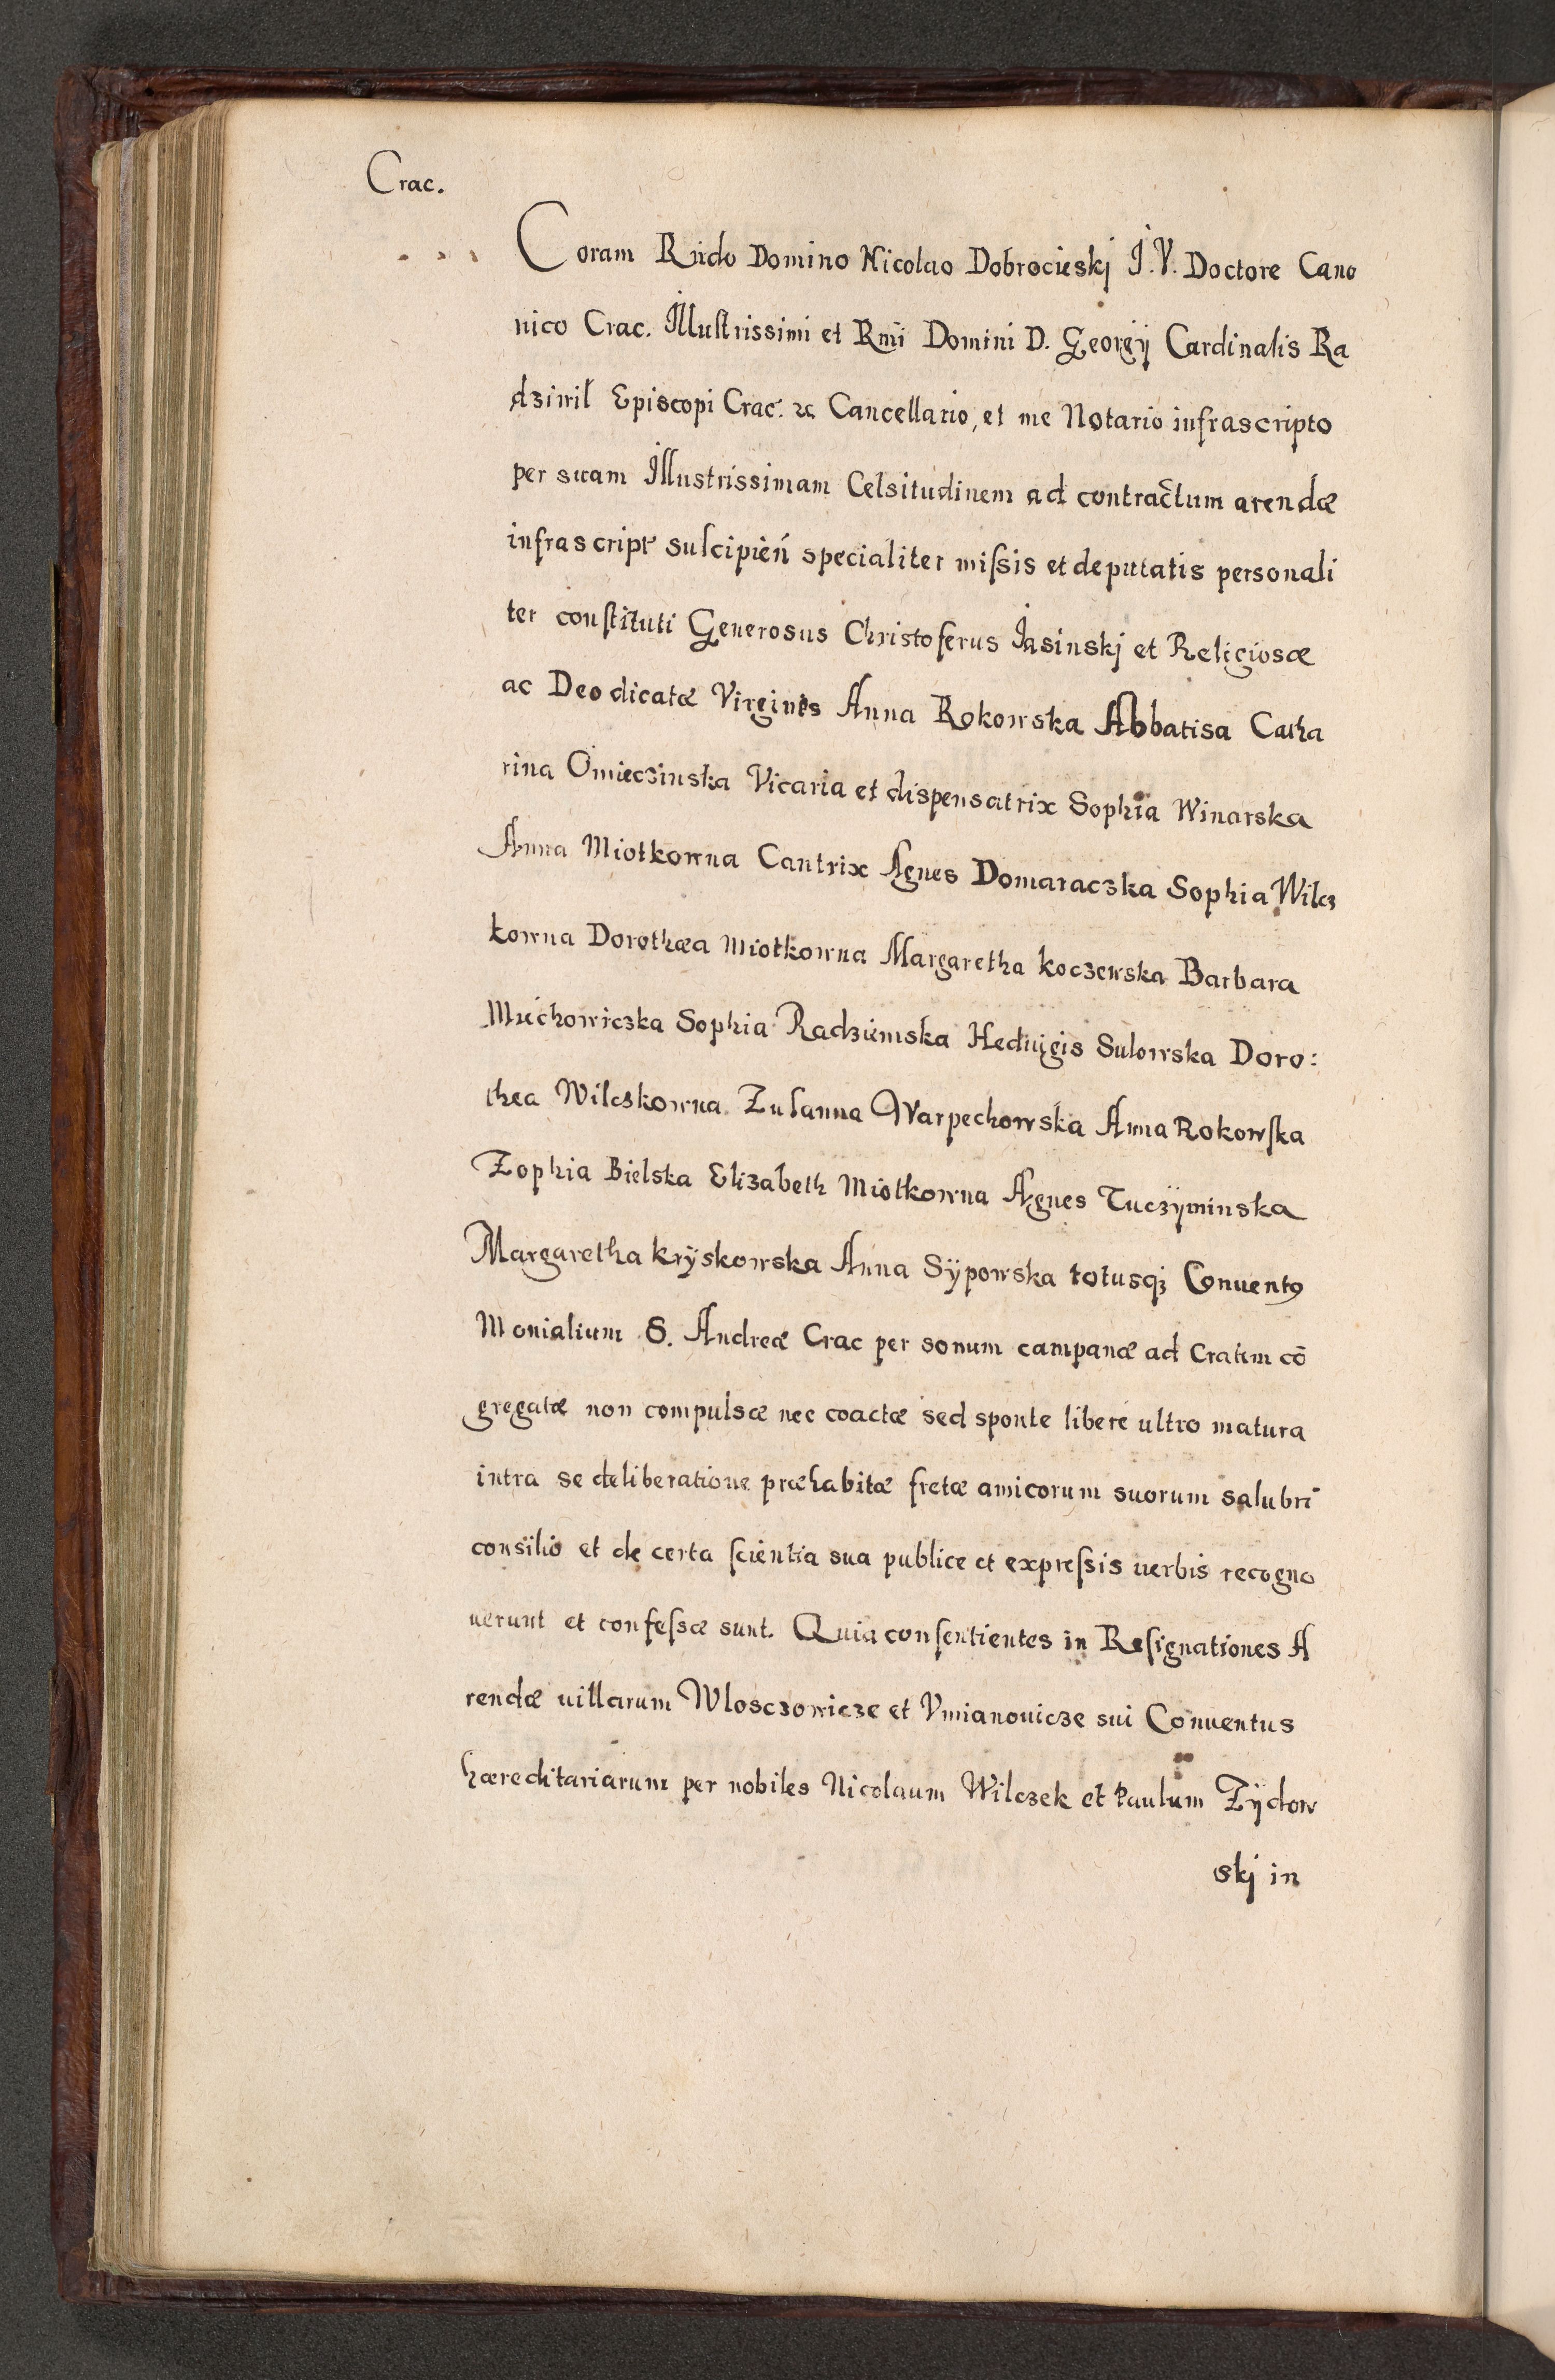 Crac.
Coram Rñdo Domino Nicolao Dobrocieskj I.V. Doctore Cano
nico Crac. Illustrissimi et Rm̃i Domini D. Georgÿ Cardinalis Ra
dziwil Episcopi Crac. Cancellario, et me Notario infrascripto
per suam Illustrissimam Celsitudinem ad contractum arendæ
infrascript suscipień specialiter missis et deputatis personali
ter constituti Generosus Christoferus Jasinskj et Religiosæ
ac Deo dicatæ Virgines Anna Rokowska Abbatisa Catha
rina Omieczinska Vicaria et dispensatrix Sophia Winarska
Anna Miotkowna Cantrix Agnes Domaraczka Sophia Wilcz
kowna Dorothæa Miotkowna Margaretha koczewska Barbara
Miechowiczka Sophia Radziemska Heduigis Sulowska Doro:
thea Wilczkowna Zusanna Warpechowska Anna Rokowska
Zophia Bielska Elizabeth Miotkowna Agnes Tuczÿminska
Margaretha krÿskowska Anna Sÿpowska totusq₃ Conventꝰ
Monialium S. Andreæ Crac per sonum campanæ ad Cratem cō
gregatæ non compulsæ nec coactæ sed sponte libere ultro matura
intra se deliberatione præhabitæ fretæ amicorum suorum salubri
consilio et de certa scientia sua publice et expressis uerbis recogno
uerunt et confessæ sunt. Quia consentientes in Resignationes A
rendæ uillarum Wlosczowicze et Vmianouicze sui Conuentus
hæreditariarum per nobiles Nicolaum Wilczek et Paulum Zÿdow
skj in